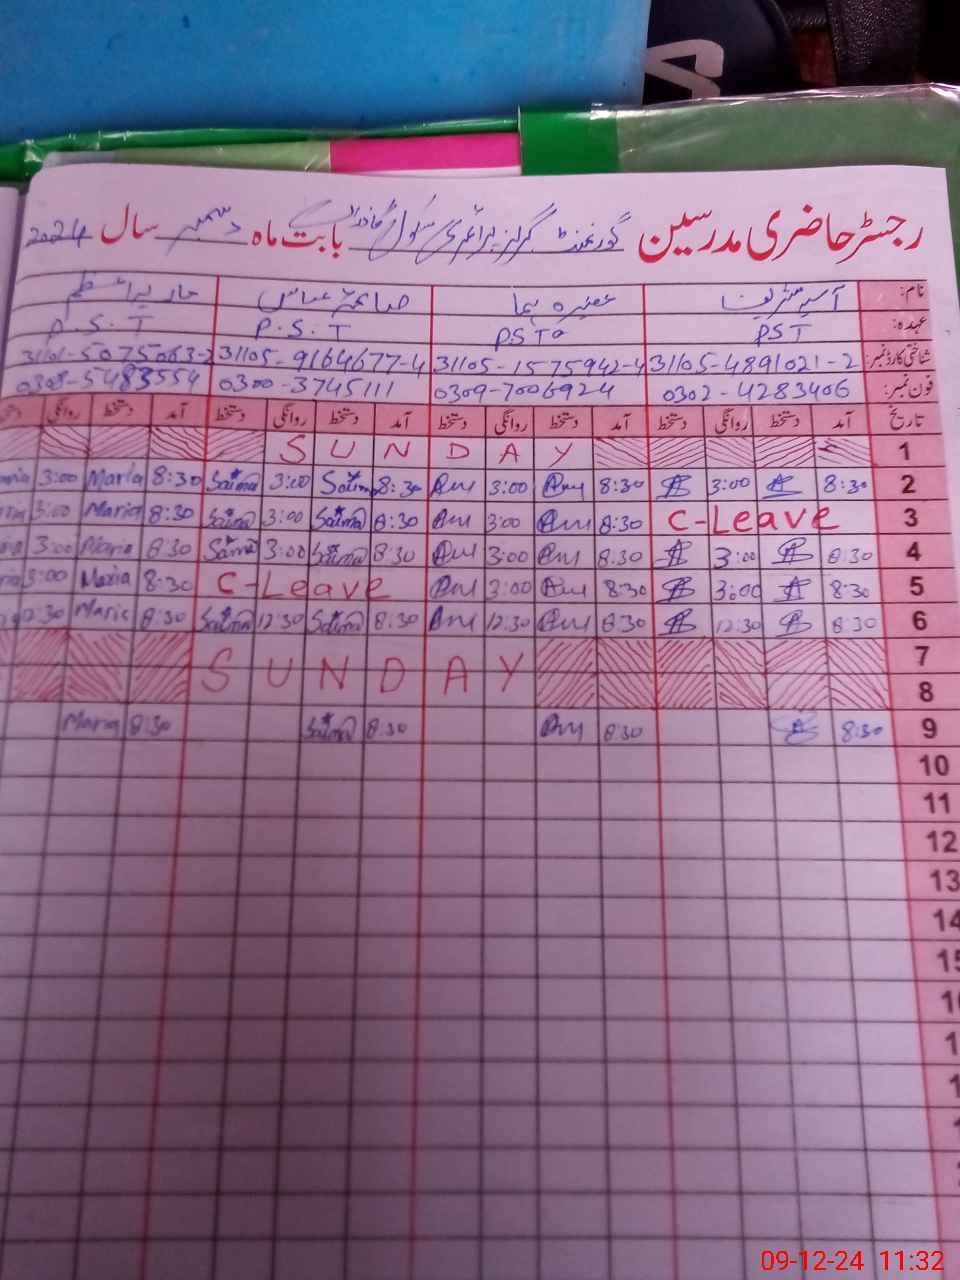 رجسٹر حاضری مدرسین گورنمنٹ گرلز پرائمری سکول بابت ماہ دسمبر سال 2024
نام:
عہدہ: PST PST P.S.T P.S.T
شناختی کارڈ نمبر: 31105-4891021-2 31105-1575942-4 31105-9164677-4 31101-5075063-2
فون نمبر: 0302-4283406 0309-7006924 0300-3745111 0308-5483554
تاریخ آمد دستخط روانگی دستخط آمد دستخط روانگی دستخط آمد دستخط روانگی دستخط آمد دستخط روانگی
1 SUNDAY
2 8:30 3:00 8:30 3:00 8:30 Saima 3:00 Saima 8:30 Maria 3:00
3 C-Leave 8:30 3:00 8:30 Saima 3:00 Saima 8:30 Maria 3:00
4 8:30 3:00 8:30 3:00 8:30 Saima 3:00 Saima 8:30 Maria 3:00
5 8:30 3:00 8:30 3:00 C-Leave 8:30 Maria 3:00
6 8:30 12:30 8:30 12:30 8:30 Saima 12:30 Saima 8:30 Maria 12:30
7
SUNDAY
8
9 8:30 8:30 8:30 Saima 8:30 Maria
10
11
12
13
14
09-12-24 11:32